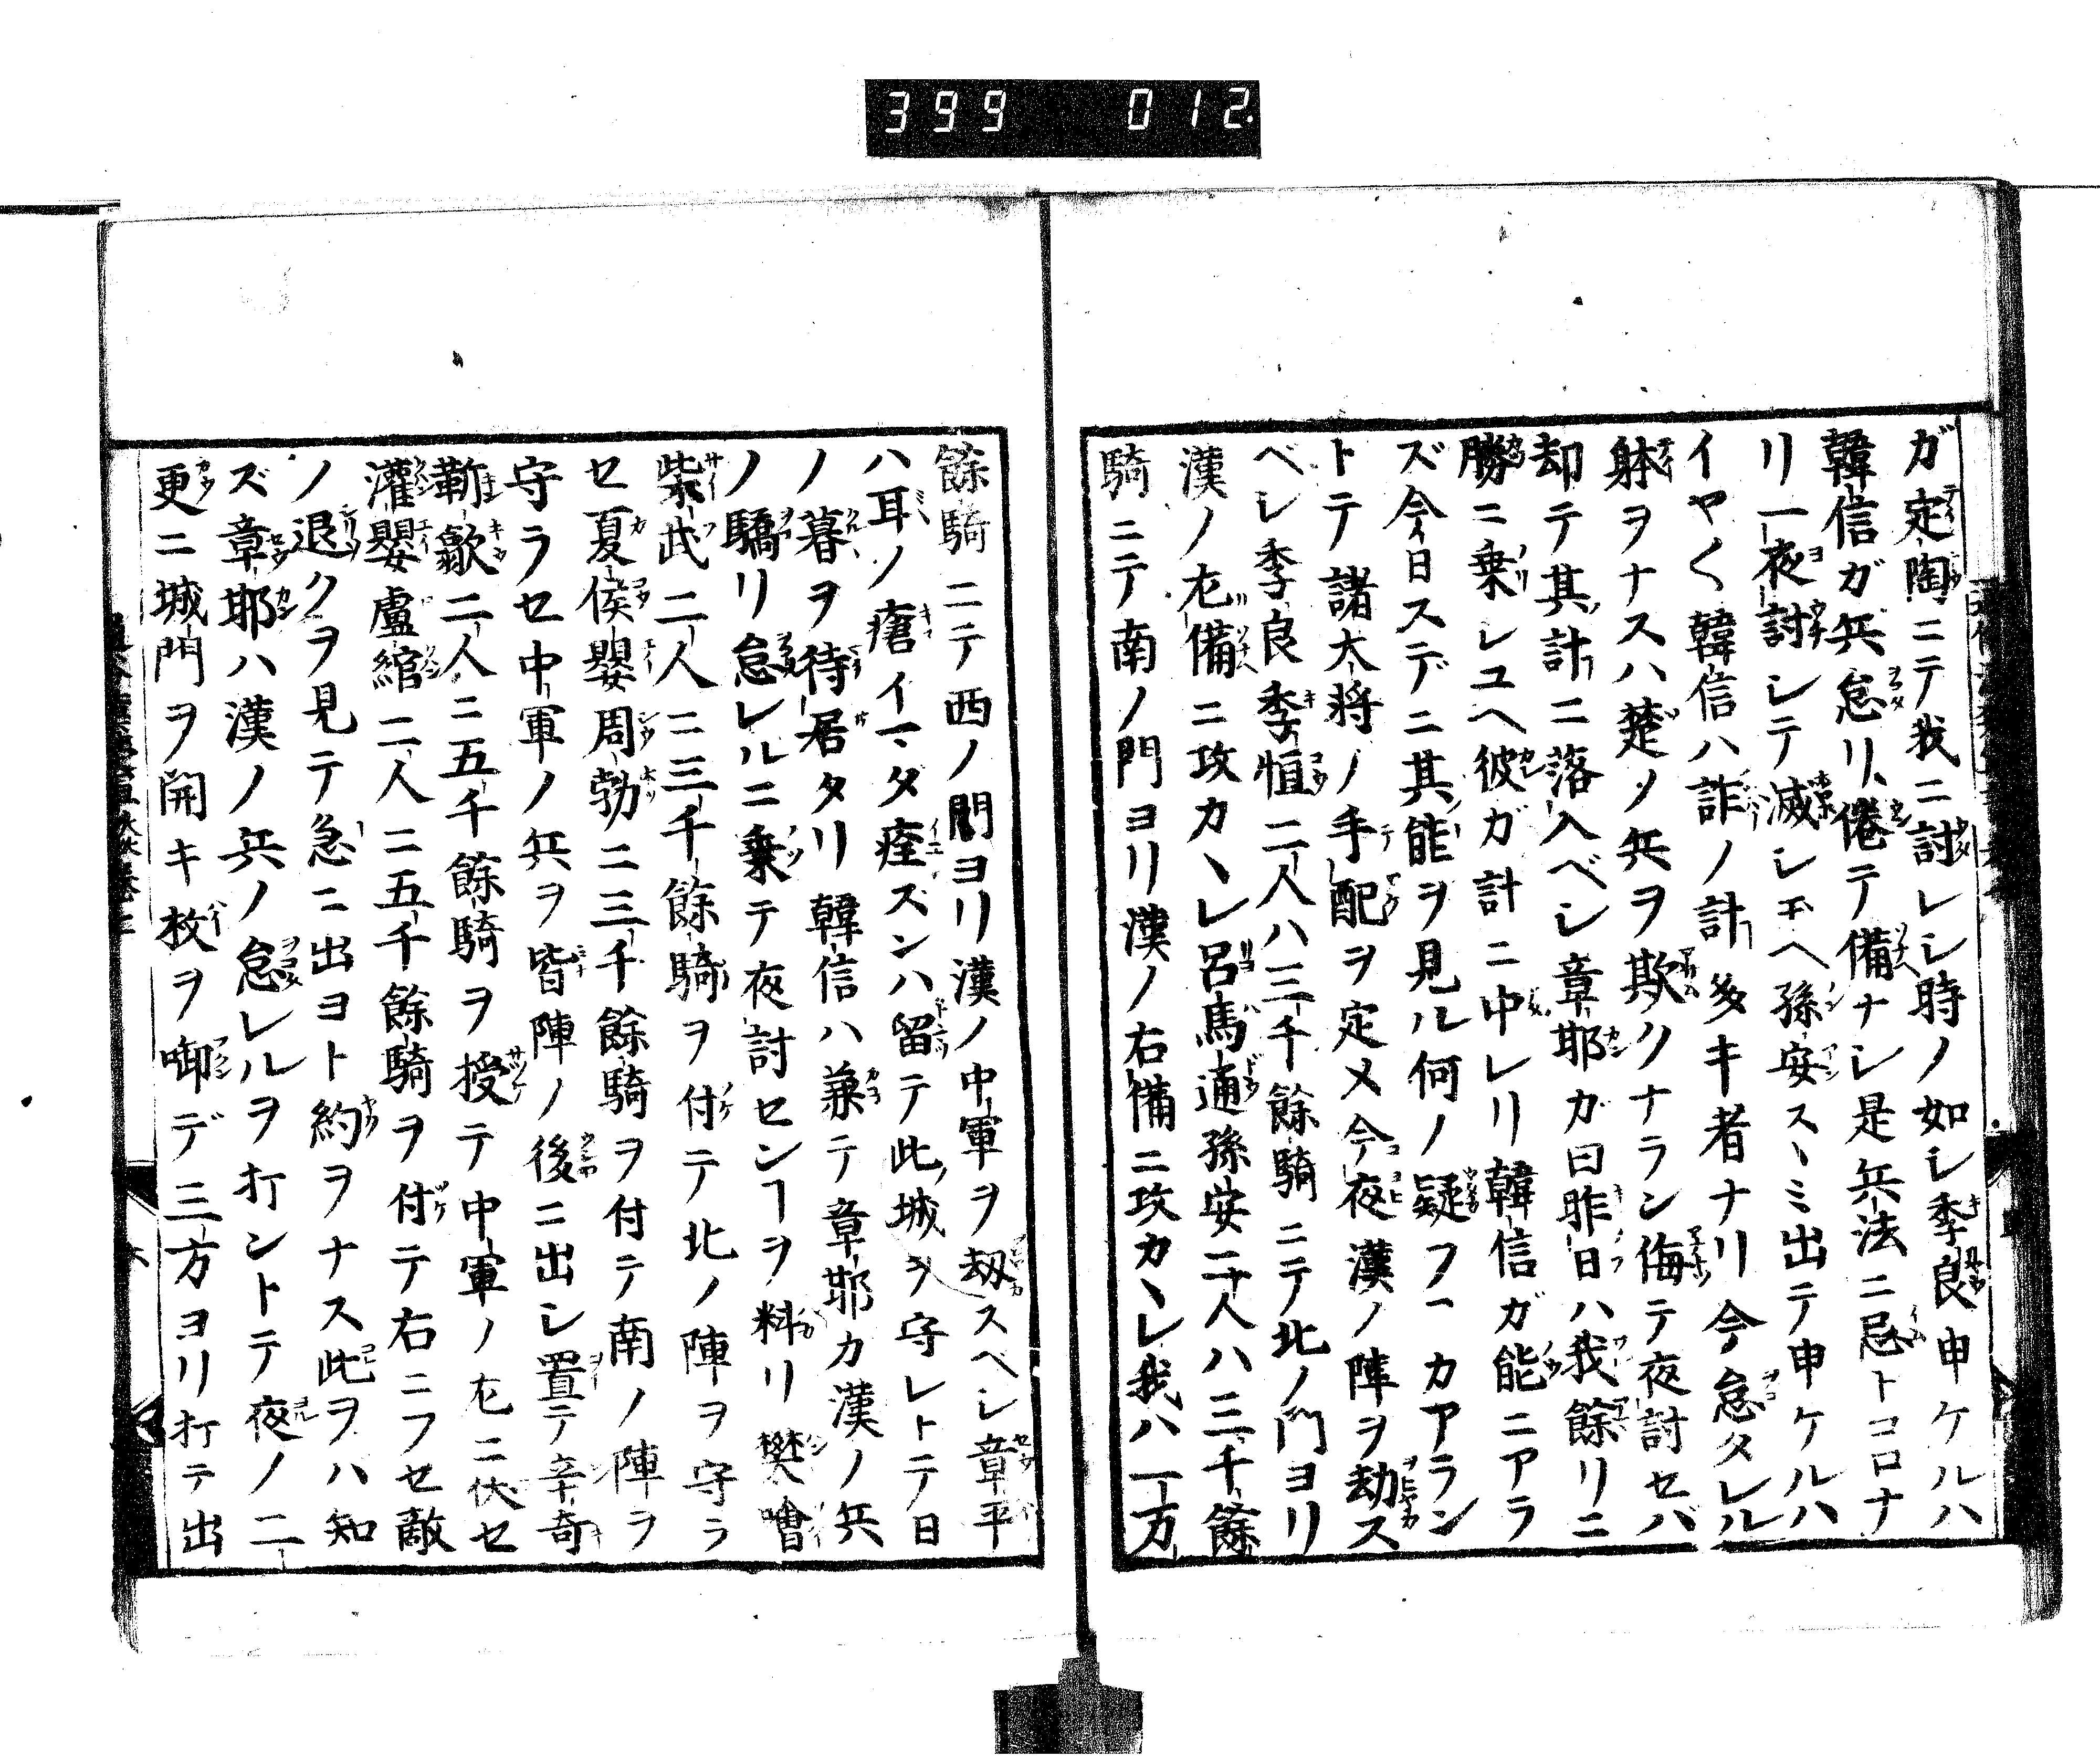 399 012
ガ定陶ニテ我ニ討レシ時ノ如シ季良申ケルハ
韓信ガ兵怠リ倦テ備ナシ是兵法ニ忌トコロナ
リ一夜討シテ滅シ玉ヘ孫安スヽミ出テ申ケルハ
イヤ〱韓信ハ詐ノ計多キ者ナリ今怠タレル
躰ヲナスハ楚ノ兵ヲ欺クナラン侮テ夜討セバ
却テ其計ニ落入ベシ章耶カ曰昨日ハ我餘リニ
勝ニ乗シユヘ彼ガ計ニ中レリ韓信ガ能ニアラ
ズ今日スデニ其能ヲ見ル何ノ疑フヿカアラン
トテ諸大将ノ手配ヲ定メ今夜漢ノ陣ヲ劫ス
ベシ季良季恒二人ハ三千餘騎ニテ北ノ門ヨリ
漢ノ左備ニ攻カヽレ呂馬通孫安二人ハ三千餘
騎ニテ南ノ門ヨリ漢ノ右備ニ攻カヽレ我ハ一万
餘騎ニテ西ノ門ヨリ漢ノ中軍ヲ刼スヘシ章平
ハ耳ノ瘡イマタ痊ズンハ留テ此城ヲ守レトテ日
ノ暮ヲ待居タリ韓信ハ兼テ章耶カ漢ノ兵
ノ驕リ怠レルニ乗テ夜討センヿヲ料リ樊噲
柴武二人ニ三千餘騎ヲ付テ北ノ陣ヲ守ラ
セ夏侯嬰周勃ニ三千餘騎ヲ付テ南ノ陣ヲ
守ラセ中軍ノ兵ヲ皆陣ノ後ニ出シ置テ辛奇
靳歙二人ニ五千餘騎ヲ授テ中軍ノ左ニ伏セ
灌嬰盧綰二人ニ五千餘騎ヲ付テ右ニフセ敵
ノ退クヲ見テ急ニ出ヨト約ヲナス此ヲハ知
ズ章耶ハ漢ノ兵ノ怠レルヲ打ントテ夜ノ二
更ニ城門ヲ開キ枚ヲ啣デ三方ヨリ打テ出